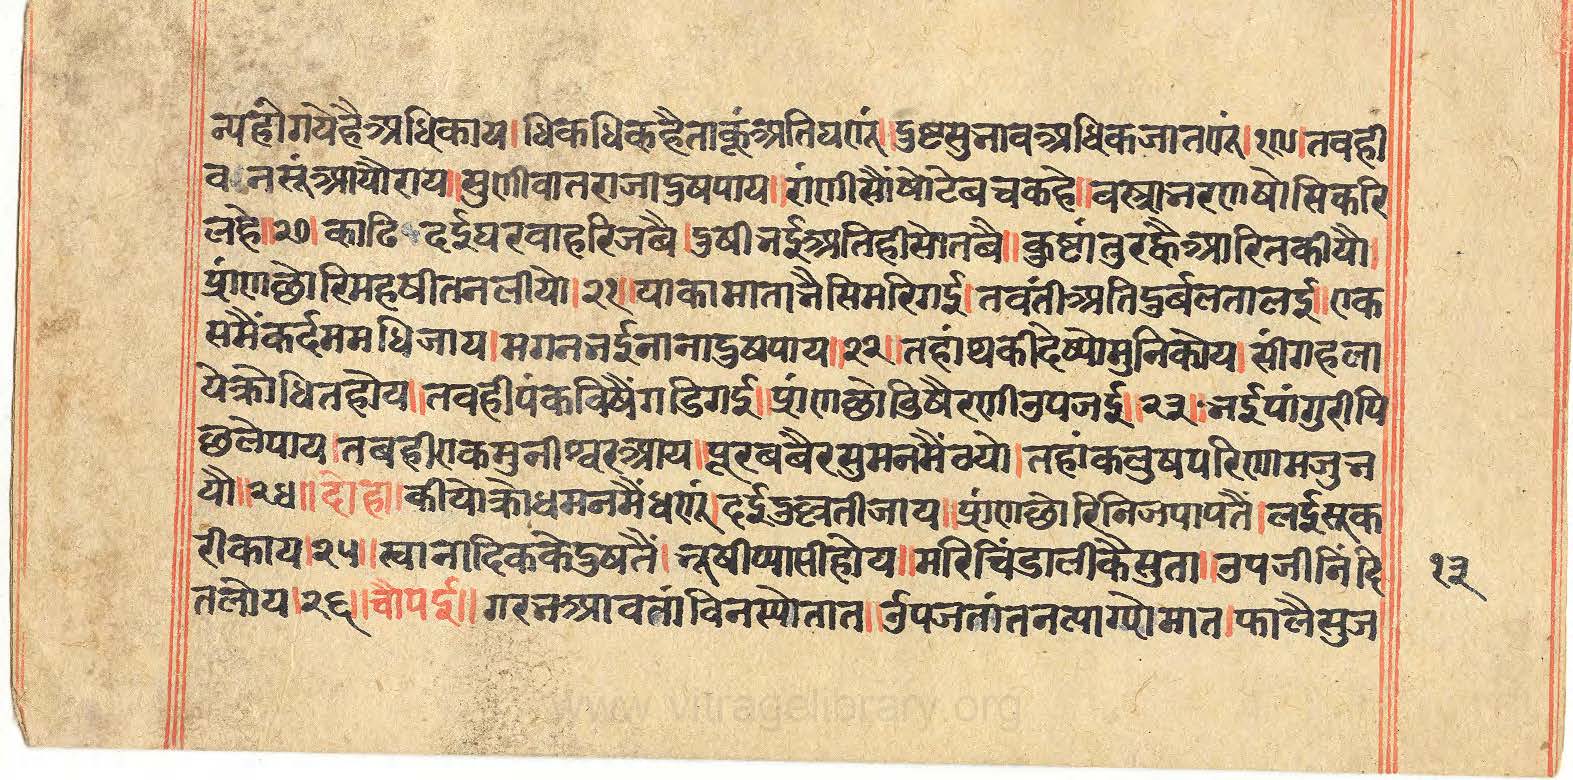 न्यहोगयेहैअधिकाय।धिकधिकहैताकूंअतिघणूं।दुष्टसुनावअधिकजातणूं।१९।तवही
वनसूंआयौराय॥सुणीवातराजादुषपाय॥रांणीसौंषोटेबचकहे॥वस्त्रानरणषोसिकरि
लहे॥२०।काढिदईघरवाहरिजबै।दुषीनईअतिहीसोतबै॥कुष्टांतुरकैआरितकीयौ।
प्रांणछोरिमहषीतनलीयो।२१॥याकामातानैसिमरिगई।तवंतीअतिदुर्बलतालई॥एक
समैंकर्दममधिजाय।मगननईनानादुषपाय॥२२॥तहांथकीदेष्योमुनिकोय।सींगहला
येक्रोधितहोय॥तवहीपंकविषैंगडिगई॥प्रांणछोडिषैरणीउपजई॥२३॥नईपांगुरीपि
छलेपाय।तबहीएकमुनीश्वरआय॥पूरबबैरसुमनमैंठयो।तहांकलुषपरिणामजुन
यौ॥२४॥दोहा॥कीयोक्रोधमनमैंधणूं।दईदुष्टतीजाय॥प्रांणछोरिनिजपापतैं।लईसूक
रीकाय।२५॥स्वानादिककेदुषतैं।नूषीप्यासीहोय॥मरिचिंडालीकैसुता॥उपजीनिंदि
तलोय।२६॥चौपई॥गरनआवतांविनस्योतात॥उपजतांतनत्याग्योमात।फालैसुज
१३
www.vitragelibrary.org